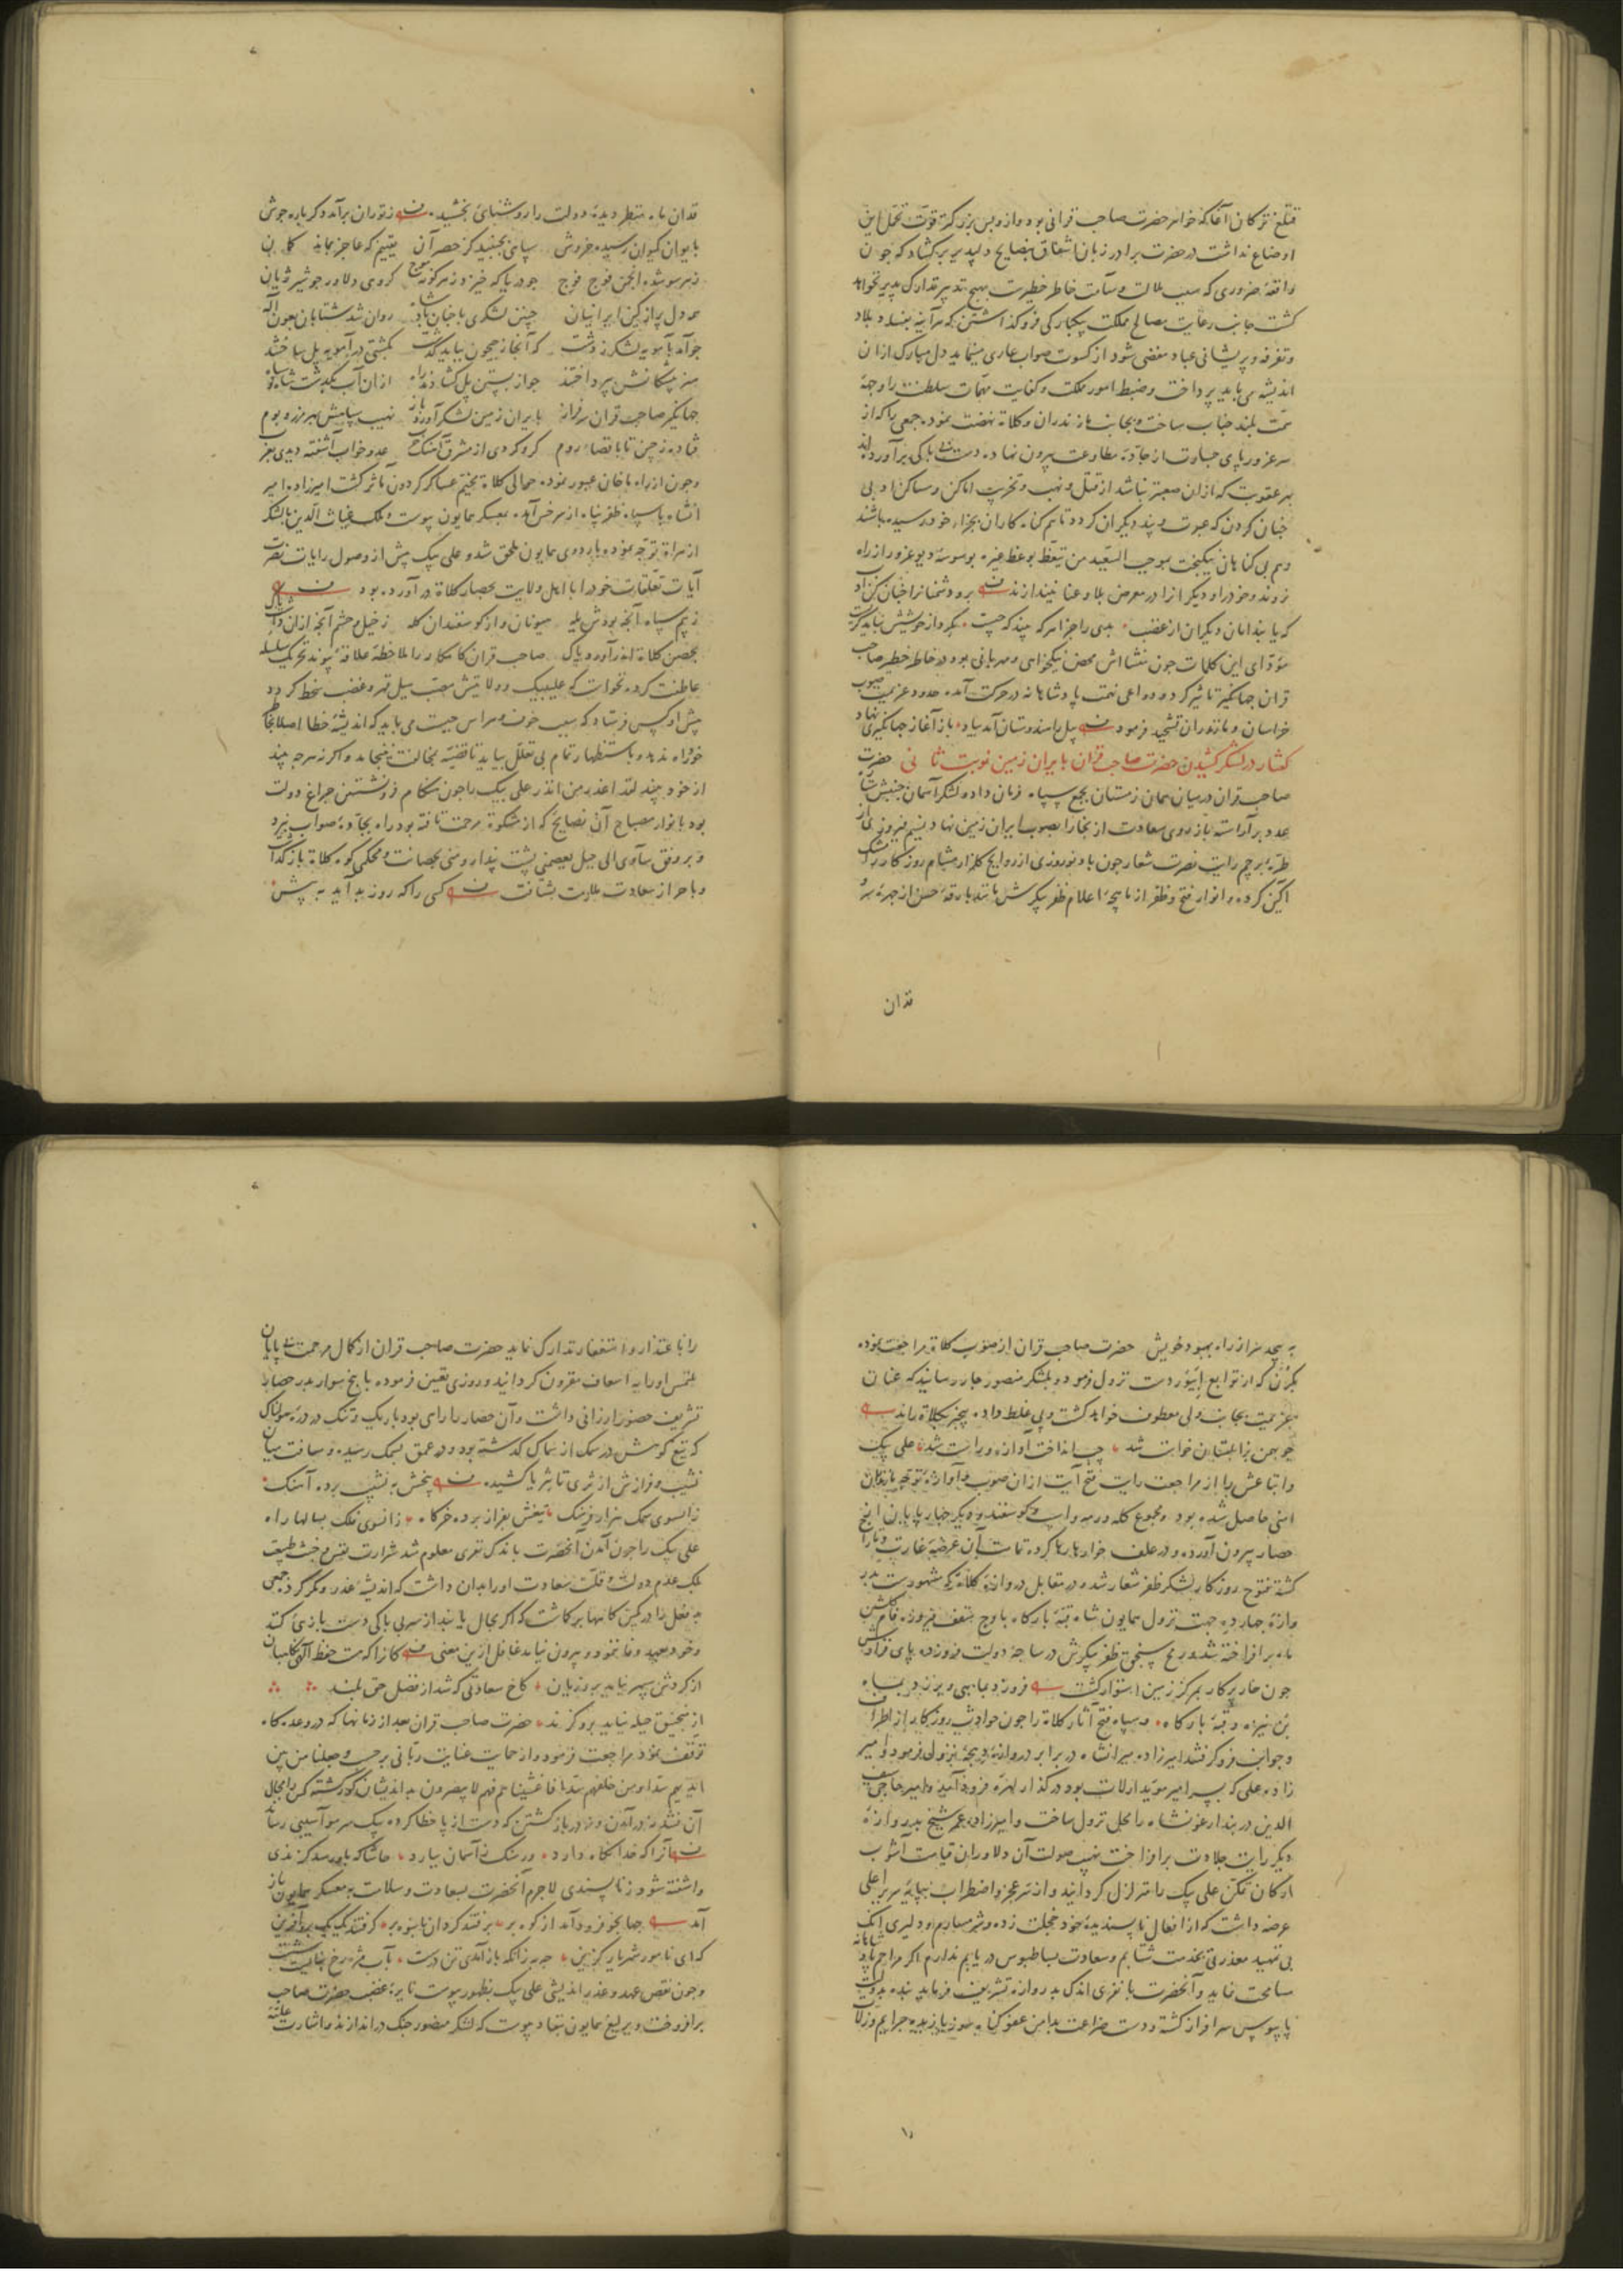 قتلغ ترکان آغا که خواهر حضرت صاحب قرانی بود و از و بس بزرکتر قوت تحمل این
اوضاع نداشت در حضرت برادر زبان اشفاق بنصایح دلپذیر برکشاد که جون
واقعهٔ ضروری که سبب ملالت و سآمت خاطر خطیرست بهیچ تدبیر تدارک پذیر نخواهد
کشت جانب رعایت مصالح مملکت بیکبارکی فرو کذاشتن که هرآینه بفساد بلاد
و تفرقه و پریشانی عباد مفضی شود از کسوت صواب عاری مینماید دل مبارک ازان
اندیشه می باید پرداخت و ضبط امور مملکت و کفایت مهمات سلطنت را وجههٔ
همت بلند جناب ساخت و بجانب مازندران و کلات نهضت نمود جمعی را که از
سر غرور پای جسارت از جادهٔ مطاوعت بیرون نهاده دست بی باکی برآورده اند
بهر عقوبت که ازان صعبتر نباشد از قتل و نهب و تخریب اماکن و مساکن ادبی
جنان کردن که عبرت و پند دیکران کردد تا هم کناه کاران بجزاء خود رسیده باشند
و هم بی کناهان نیکبخت بموجب السعید من یتعظ بوعظ غیره بوسوسهٔ دیو غرور از راه
نروند و خود را و دیکر انرا در معرض بلا و عنا نیندازند برو دشمنانرا جنان کن ادب
که یابند امان دیکران از غضب بدی را جزا هر که بیند که جیست بکردار خویشش نباید کریست
مؤدای این کلمات جون منشااش محض نیکخواهی و مهربانی بود در خاطر خطیر صاحب
قران جهانکیر تاثیر کرد و دواعی همت پادشاهانه در حرکت آمده حدود عزیمت صوب
خراسان و مازندران تشحیذ فرمود پیل را هندوستان آمد بیاد باز آغاز جهانکیری نهاد
کفتار در لشکر کشیدن حضرت صاحب قران بایران زمین نوبت ثانی حضرت
صاحب قران در میان همان زمستان بجمع سپاه فرمان داد و لشکر آسمان جنبش ستاره
عدد برآراسته باز روی سعادت از بخارا بصوب ایران زمین نهاد و نسیم فیروزی از
طرهٔ پرچم رایت نصرت شعار جون باد نوروزی از روایح کلزار مشام روزکار را مشک
آکین کرده و انوار فتح و ظفر از ماهچهٔ اعلام ظفر پیکرش مانند بارقهٔ حسن از جهرهٔ
قدان
قدان ماه منظر دیدهٔ دولت را روشنایی بخشید ز توران برآمد دکر باره جوش
بایوان کیوان رسیده خروش سپاهی بجنبید کز حصر آن یقینم که عاجز بماند کمان
ز هر سو شده انجمن فوج فوج جو دریا که خیزد ز هر کونه موج کروهی دلاور جو شیر ژیان
همه دل پر از کین ایرانیان چنین لشکری با جنان پادشاه روان شد شتابان بعون آله
جو آمد بآمویه لشکر ز دشت که آنجا ز جیحون بباید کذشت بکشتی در آمویه پل ساختند
هنر پیشکانش بپرداختند جو از بستن پل کشادند راه ازان آب بکذشت شاه و سپاه
جهانکیر صاحب قران سرفراز بایران زمین لشکر آورد باز نهیب سپاهش بهر مرز و بوم
فتاده ز چین تا باقصاء روم کرو کردی از مشرق آهنک حرب عدو خواب آشفته دیدی بغرب
و جون از راه ماخان عبور نموده حوالی کلات مخیم عساکر کردون مآثر کشت امیرزاده امیر
انشاه با سپاه ظفر پناه از سرخس آمده بمعسکر همایون پیوست و ملک غیاث الدین با لشکر
از هراة توجه نمود و باردوی همایون ملحق شد و علی بیک پیش از وصول رایات نصرت
آیات تعلقات خود را با اهل ولایت بحصار کلاة در آورده بود
ز بیم سپاه آنجه بودش یله هیونان و از کوسفندان کله ز خیل و حشم آنجه ازان داشت باک
بحصن کلاة اندر آورد پاک صاحب قران کامکار را ملاحظهٔ علاقهٔ پیوند تحریک سلسله
عاطفت کرد نخواست که علیبیک و ولایتش معبر سیل قهر و غضب سخط کردد
پیش او کس فرستاد که سبب خوف و هراس جیست می باید که اندیشهٔ خطا اصلا بخاطر
خود راه ندهد و باستظهار تمام بی تعلل بیاید تا قضیه بخالت نینجامد و اکر نه هر جه بیند
از خود بیند لقد اعذر من انذر علی بیک را جون هنکام فرو نشستن جراغ دولت
بود بانوار مصباح آن نصایح که از مشکوة مرحمت تافته بود راه بجادهٔ صواب نبرد
و بر وفق سآوی الی جبل یعصمنی پشت پندار و منی بحصانت و محکمی کوه کلاة باز کذاشت
و باحراز سعادت ملازمت نشتافت کسی را که روز بد آید به پیش
به پیچد سر از راه بهبود خویش حضرت صاحب قران از صوب کلاة مراجعت نموده
بکرن که از توابع ابیورد ست نزول فرمود و بلشکر منصور جار رسانید که عنان
عزیمت بجانب ولی معطوف خواهد کشت و پی غلط داده بیخبر بکلاة راند
جو بهمن بزابلستان خواست شد چپ انداخت آوازه و راست شد علی بیک
و اتباعش را از مراجعت رایت فتح آیت ازان صوب و آوازهٔ توجه مازندران
امنی حاصل شده بود و مجموع کله و رمه و اسب و کوسفند و دیکر جهارپایان از
حصار بیرون آورده و در علف خوارها رها کرده تمامت آن عرضهٔ غارت و تاراج
کشته فتوح روزکار لشکر ظفر شعار شد و در مقابل دروازهٔ کلاة که مشهورست بدر
وازهٔ جهارده جهت نزول همایون شاه قبهٔ بارکاه باوج سقف فیروزه فام
ماه برافراخته شد و رمح سنجق ظفر پیکرش در ساحهٔ دولت
جون خار پرکار بمرکز زمین استوار کشت فروزد مباهی و یرزد
بن نیزه و قبهٔ بارکاه و سپاه فتح آثار کلاة را جون حوادث روزکار از اطراف
و جوانب فرو کرفتند امیرزاده میرانشاه در برابر دروازهٔ دهجه نزول فرمود و امیر
زاده علی که پسر امیر موید ارلات بود در کذار لهره فرود آمد و امیر حاجی سیف
الدین در بند ارغونشاه را محل نزول ساخت و امیرزاده عمر شیخ بدروازهٔ
دیکر رایت جلادت برافراخت نهیب صولت آن دلاوران قیامت آشوب
ارکان تمکن علی بیک را متزلزل کردانید و از سر عجز و اضطراب بپایهٔ سریر اعلی
عرضه داشت که از افعال ناپسندیدهٔ خود خجلت زده و شرمسارم و دلیری آنک
بی تمهید معذرتی بخدمت شتابم و سعادت بساطبوس دریابم ندارم اکر مراحم پادشاهانه
مسامحت نماید و آنحضرت با نفری اندک بدروازه تشریف فرماید بنده بدولت
پایبوس سرافراز کشته و دست ضراعت بدامن عفو جرایم و زلات
را باعتذار و استغفار تدارک نماید حضرت صاحب قران از کمال مرحمت بی پایان
ملتمس او را به اسعاف مقرون کردانید و روزی تعیین فرموده با پنج سوار بدر حصار
تشریف حضور ارزانی داشت و آن حصار را راهی بود باریک و تنک در درهٔ هولناک
که تیغ کوهش در سمک از سماک کذشته بود و در عمق بسمک رسیده و مسافت میان
نشیب و فرازش از ثری تا ثریا کشیده پخش به نشیب برده آهنک
زانسوی سمک هزار فرسنک تیغش بفراز برده خرکاه زانسوی فلک بسالها راه
علی بیک را جون آمدن آنحضرت با اندک نفری معلوم شد شرارت نفس و خبث طبیعت
بلک عدم دولت و قلت سعادت او را بدان داشت که اندیشهٔ غذر و مکر کرد جمعی
بد فعل را در کمین کاهها بر کماشت که اکر مجال یابند از سر بی باکی دست بازی کنند
و خود بعهد وفا ننمود و بیرون نیامد غافل ازین معنی کانرا که هست حفظ آلهی نکاهبان
از کردش سپهر نیابد برو زیان کاخ سعادتی که شد از فضل حق بلند
از منجنیق حیله نیابد برو کزند حضرت صاحب قران بعد از زمانها که در وعده کاه
توقف نمود مراجعت فرمود و از حمایت عنایت ربانی بر حسب و جعلنا من بین
ایدیهم سدا و من خلفهم سدا فاغشیناهم فهم لا یبصرون بد اندیشان کور کشته کس را مجال
آن نشد نه در آمدن و نه در باز کشتن که دست از پا خطا کرده یک سر مو آسیبی رساند
آنرا که خدا نکاه دارد ور سنک ز آسمان ببارد حاشا که بدو رسد کزندی
و آشفته شود ز ناپسندی لاجرم آنحضرت بسعادت و سلامت به معسکر همایون باز
آمد جهانجو فرود آمد از کوه بر برفتند کردان بانبوه بر کرفتند یک یک برو آفرین
که ای نامور شهریار کزین جه به زانکه باز آمدی تن درست بآب مژه رخ ببایست شست
و جون نقص عهد و غذر اندیشی علی بیک بظهور پیوست نایرهٔ غضب حضرت صاحب
برافروخت و یرلیغ همایون بنفاد پیوست که لشکر منصور جنک در اندازند و اشارت